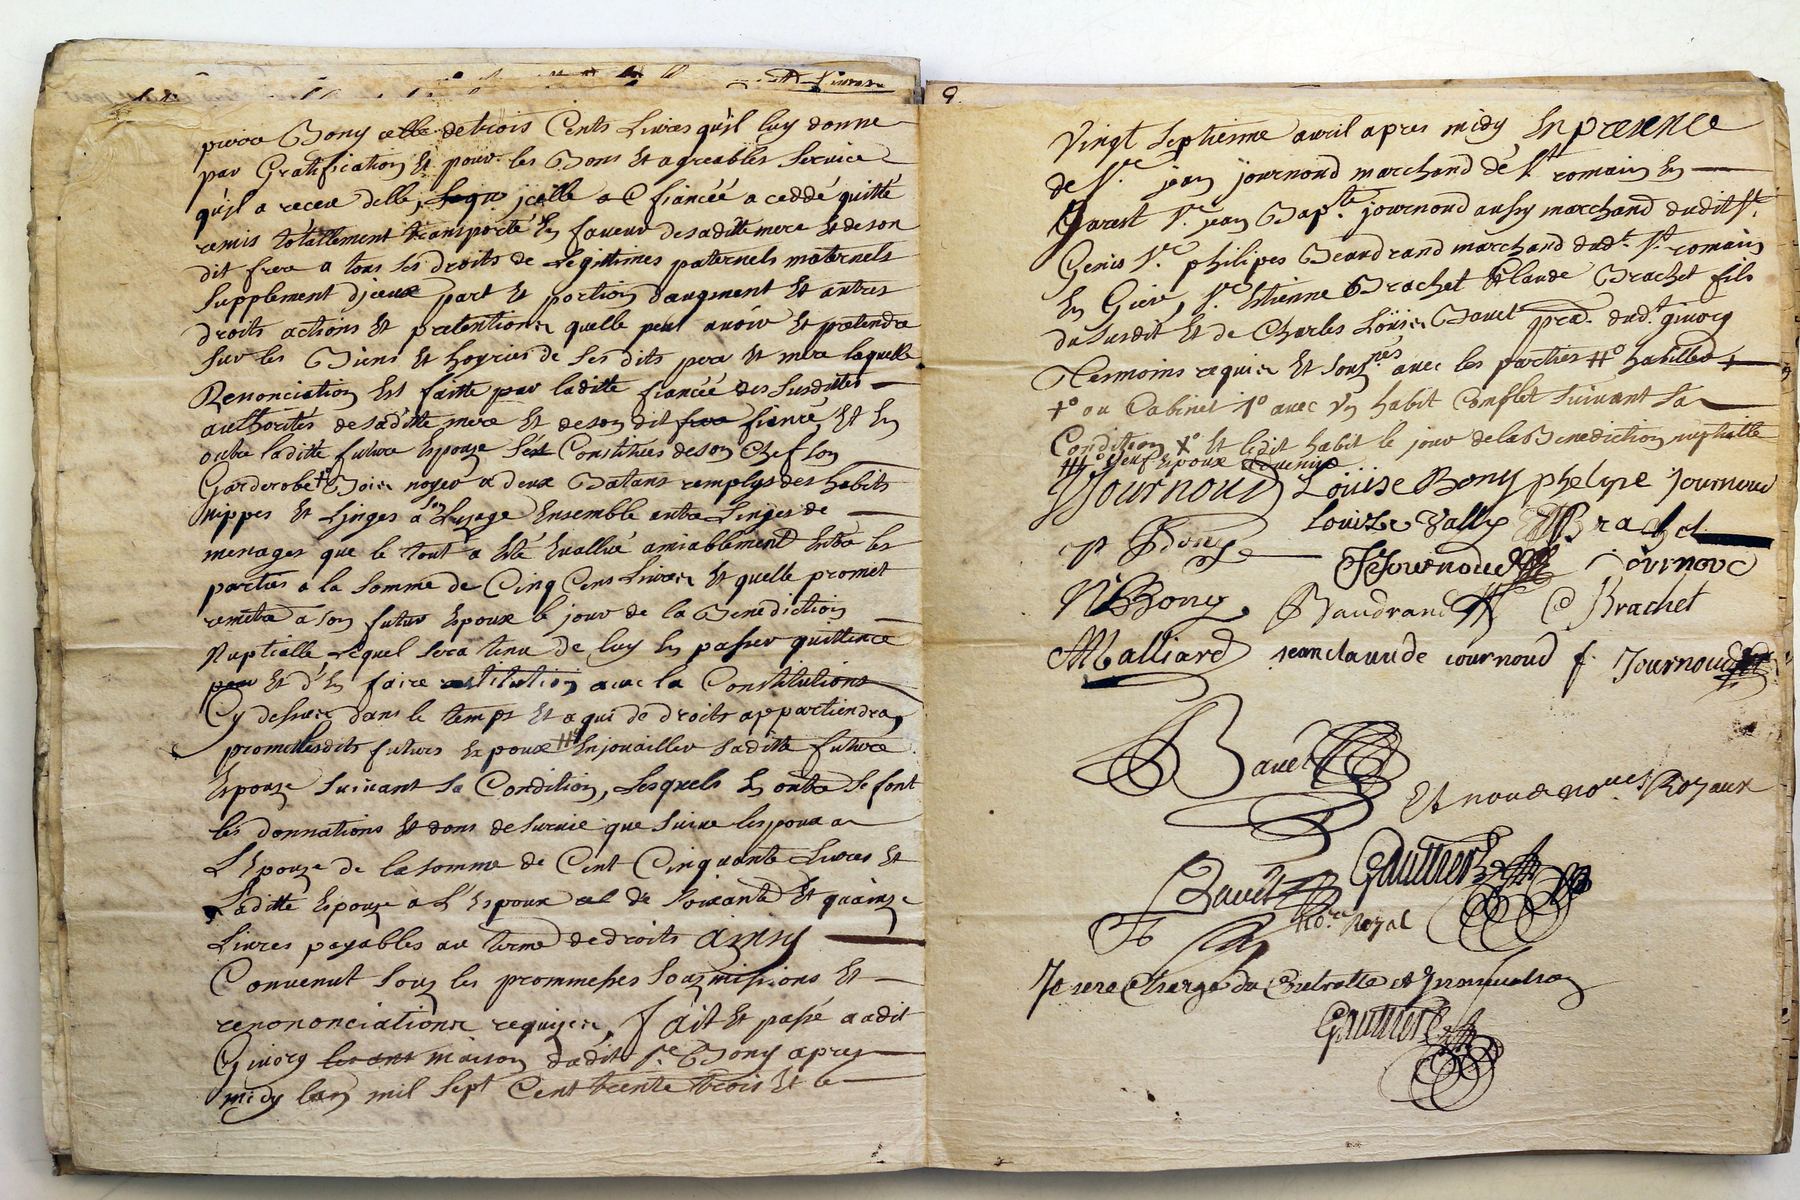 pierre Bony celle de trois Cents Livres qu'il luy donne
par Gratification Et pour les Bons Et agreables Service
qu'il a receu delle, jcelle fiancéé a ceddé quitté
remis totallement transporté En faveur desaditte mere Et de son
dit frere a tous ses droits de Legittimes paternels maternels
Supplement djceux part Et portion daugment Et autres
droits actions Et pretentions quelle peut avoir Et pretendre
Sur les Biens Et hoyries de Ses dits pere Et mere laquelle
Renonciation Est faitte par laditte fiancéé des Susdittes
authorités desaditte mere Et de son dit frere fiancé, Et En
outre laditte future Espouze S'est Constituée de son Chef Son
Garderobe Bois noyer a deux Batans remplys des habits
nippes Et Linges a Son Usage Ensemble autre Linges de
menages que le tout a Esté Evallué amiablement Entre les
parties a la Somme de Cinq Cens Livres Et quelle promet
remettre a Son futur Espoux le jour de la Benediction
Nuptialle lequel Sera tenu de luy En passer quittance
Et d'En faire restitution avec la Constitution
Cy dessus dans le temps Et a qui de droits appartiendra,
promet lesdits futurs Espoux Enjouailler Saditte future
Espouze Suivant Sa Condition, Lesquels En outre Se font
les donnations Et dons de Survie que Suive Lespoux a
L'Espouze de la Somme de Cent Cinquante Livres Et
Laditte Espouze à L'Espoux cel de Soixante Et quainze
Livres payables au terme de droits Ainsy
Convenut Sous les prommesses Sousmissions Et
renononciations requises, fait Et passé audit
Givors maison dudit Sr. Bony apres
midy Lan mil Sept Cent trente trois Et le
9.
Vingt Septieme avril apres midy En presence
de Sr. jean journoud marchand de St. romain En
Jarest Sr. jean Bapte. journoud aussy marchand dudit St.
Genis Sr. philipes Beaudrand marchand dudt. St. romain
En Gier, Sr. Estienne Brachet Claude Brachet fils
du Susdit Et de Charles Loüis Bavet prat. dudt. givors
Tesmoins requis Et Sousnés. avec les parties
ou Cabinet avec Vn habit Complet Suivant Sa
Condition Et ledit habit le jour de la Benediction nuptialle
Journoud Louïse Bony phelipe Journoud
Bony Louize Vally Brachet
Journoud Journoud
Bony Baudrand C Brachet
Malliard jean claude journoud f. Journoud
Bavet
Et nous nores. Royaux
Bavet Gaultier
Nore. royal
Je sere Charge du Controlle et Jnsinuation
Gaultier